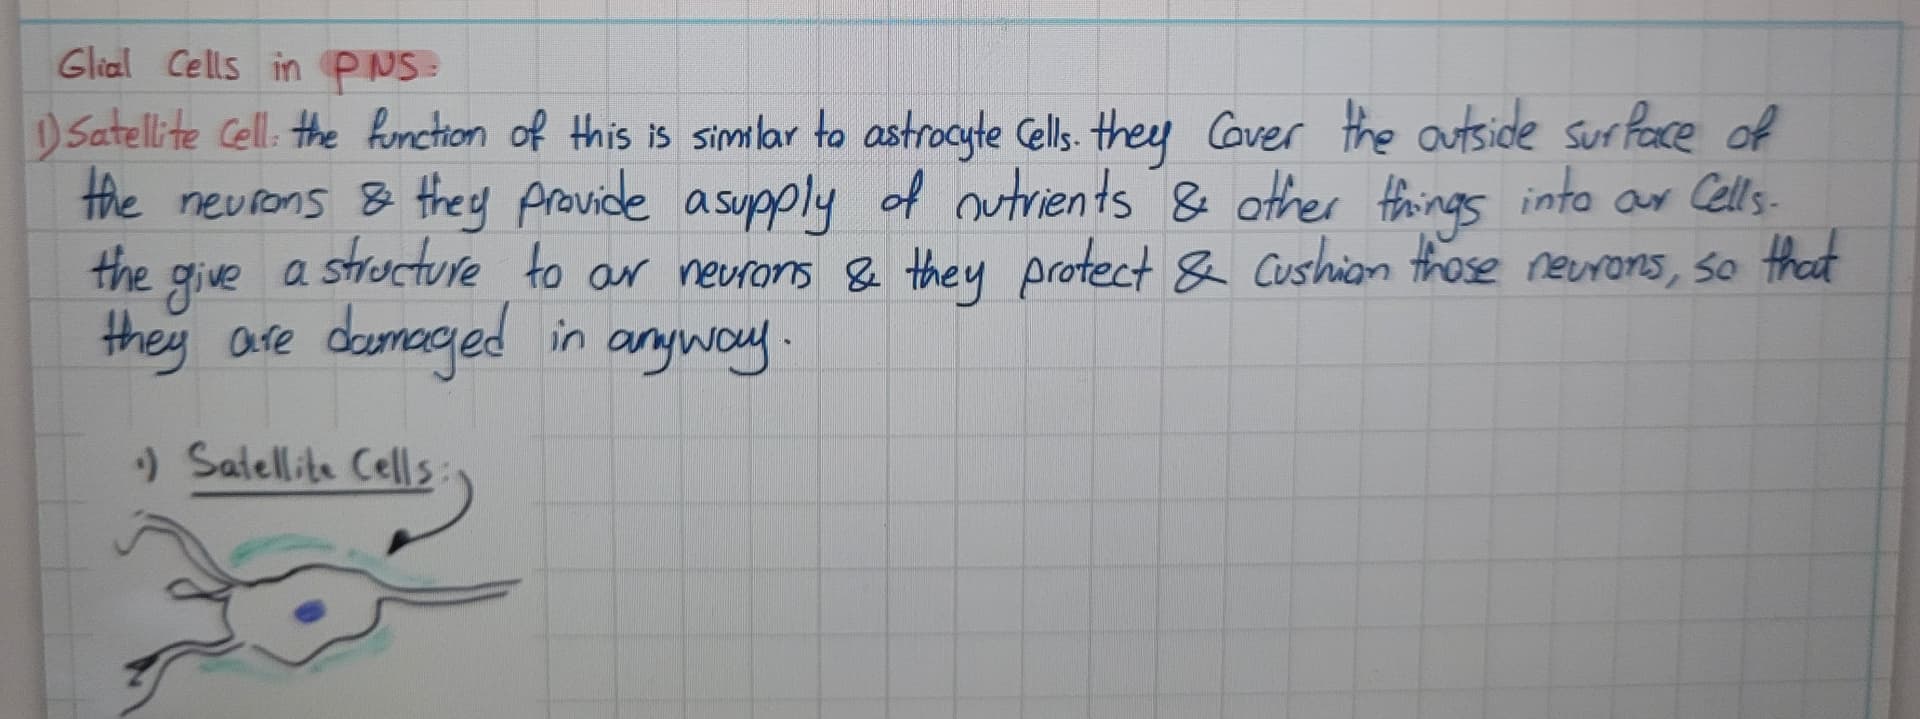 Glial Cells in PNS:
1) Satellite Cell: the function of this is similar to astrocyte Cells. they Cover the outside surface of
the neurons & they provide a supply of nutrients & other things into our Cells.
the give a structure to our neurons & they protect & Cushion those neurons, so that
they are damaged in anyway.
1) Satellite Cells: